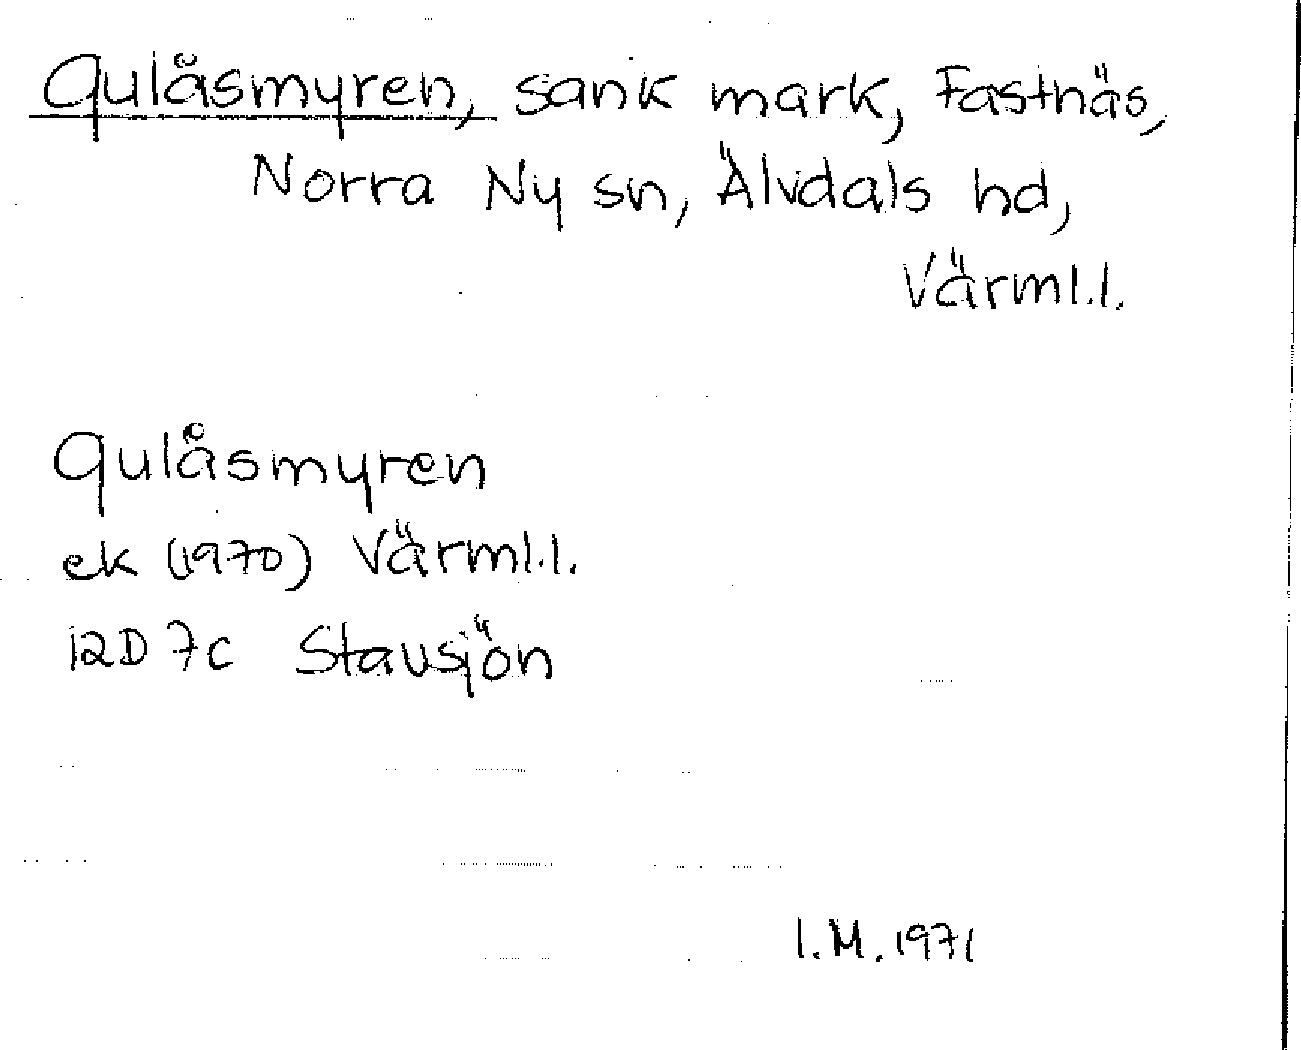 Gulåsmyren, sank mark, Fastnäs,
Norra Ny sn, Älvdals hd,
Värml.l.
Gulåsmyren
ek (1970) Värml.l.
12D 7c Stavsjön
I.M. 1971